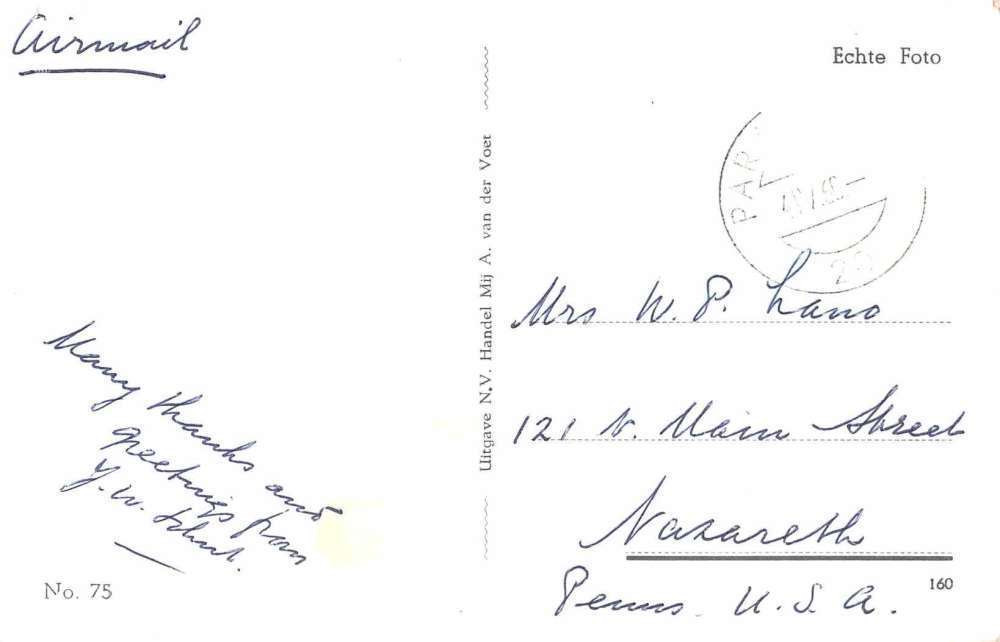 Airmail
Many thanks and
greetings from
Y. W. Schut.
No. 75
Uitgave N.V. Handel Mij A. van der Voet
Echte Foto
PAR
Mrs W. P. Lano
121 N. Main Street
Nazareth
Penns. U. S. A.
160